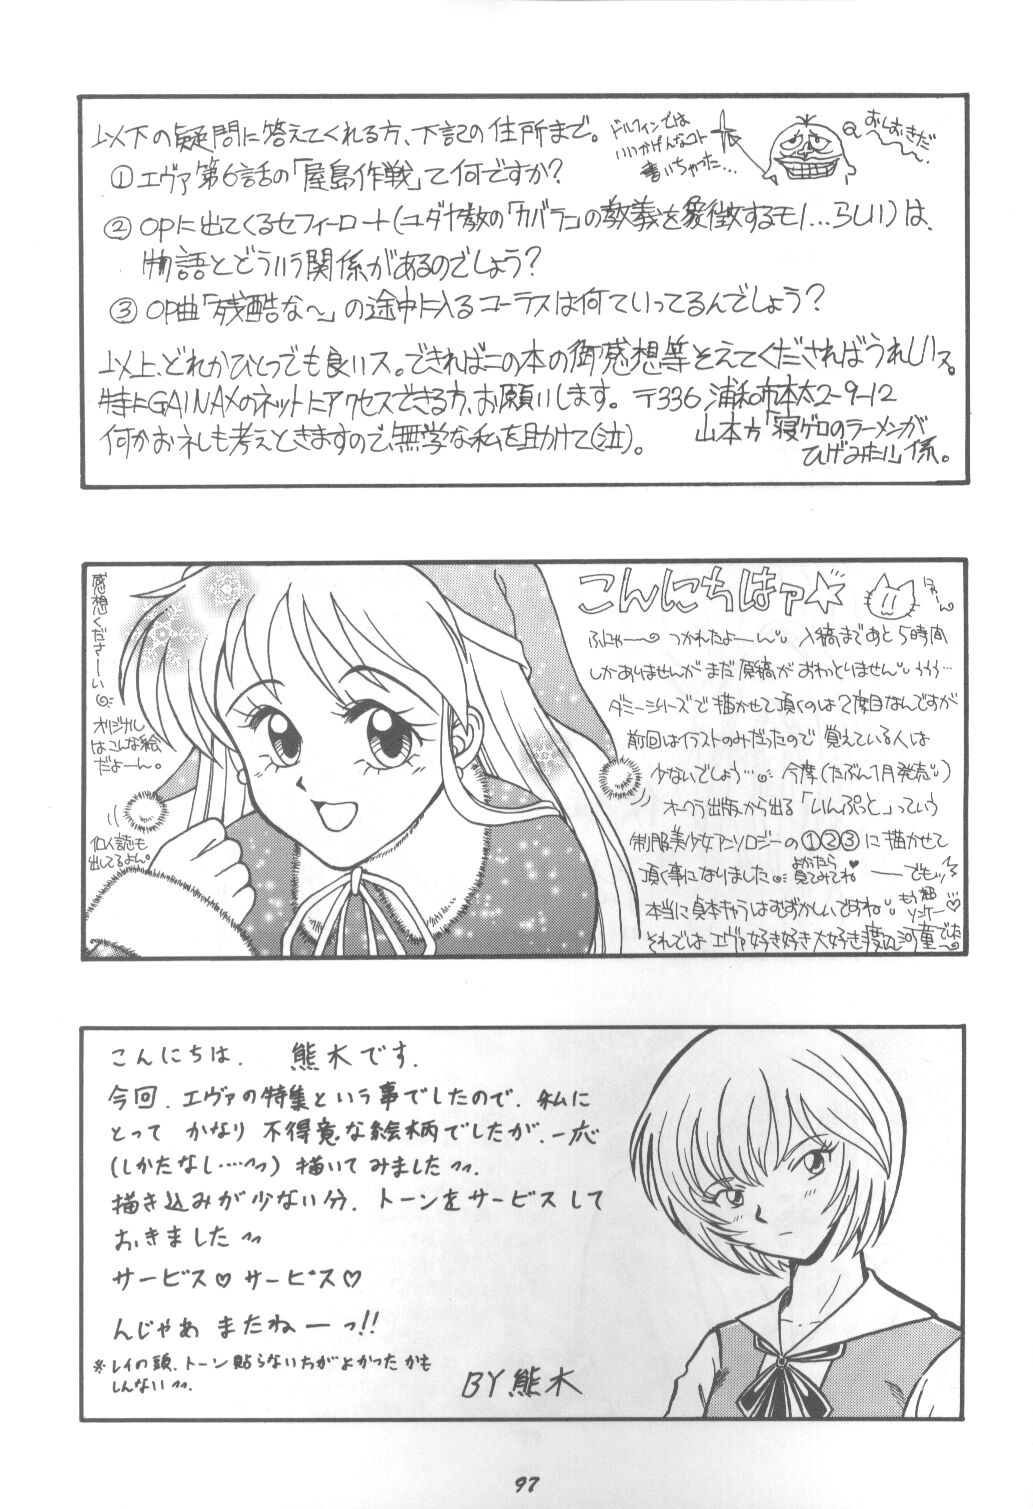 以下の疑問に答えてくれる方、下記の住所まで。
①エヴァ第6話の「屋島作戦」て何ですか?
②OPに出てくるセフィーロト(ユダヤ教の「カバラ」の教義を象徴するモノ…らしい)は、
物語とどういう関係があるのでしょう?
③OP曲「残酷な〜」の途中に入るコーラスは何ていってるんでしょう?
以上、どれかひとつでも良いス。できればこの本の御感想等そえてくださればうれしいス。
特にGAINAXのネットにアクセスできる方、お願いします。〒336 浦和市本太2-9-12
何かお礼も考えときますので、無学な私を助けて(泣)。 山本方「寝ゲロのラーメンが
ひげみたい」係。
ドルフィンでは
いいかげんなコト
書いちゃった…
おしおきだ
〜〜。
感想くださーーい
オリジナル
はこんな絵
だよーん。
個人誌も
出してるよん。
こんにちはァ☆
ふにゃ〜 つかれたよーん。 入稿まであと5時間
しかありませんが まだ原稿がおわっとりません。ううう…
ダミーシリーズで描かせて頂くのは2度目なんですが
前回はイラストのみだったので 覚えている人は
少ないでしょう… 今度(たぶん1月発売)
オークラ出版から出る「いんぷっと」っていう
制服美少女アンソロジーの①②③に描かせて
頂く事になりました よかったら見てみてね ——でもッ!
本当に貞本キャラはむずかしいですね もう
それでは エヴァ好き好き大好き 河童でした
こんにちは. 熊木です.
今回、エヴァの特集という事でしたので、私に
とって かなり 不得意な絵柄でしたが、一応
(しかたなし……^^) 描いてみました^^.
描き込みが少ない分、トーンをサービスして
おきました^^
サービス♡ サービス♡
んじゃあ またねーっ!!
※レイの頭、トーン貼らないちがよかったかも
しんない^^.
BY熊木
97